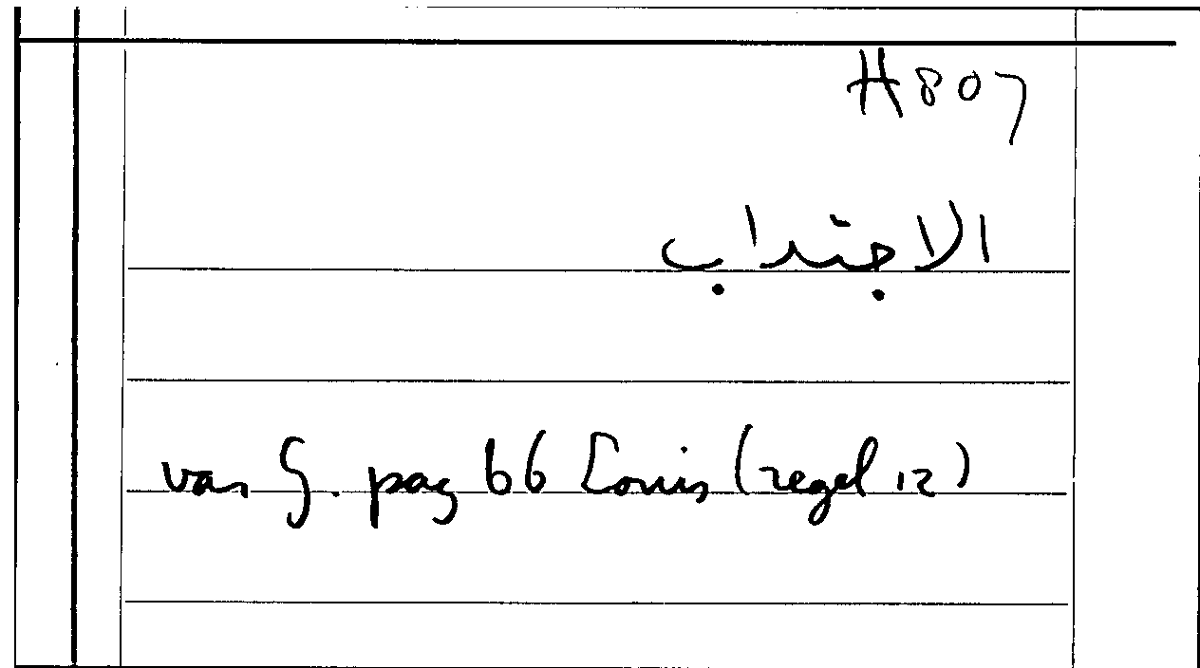 H807
الاجتداب
van G. pag 66 Louis (regel 12)